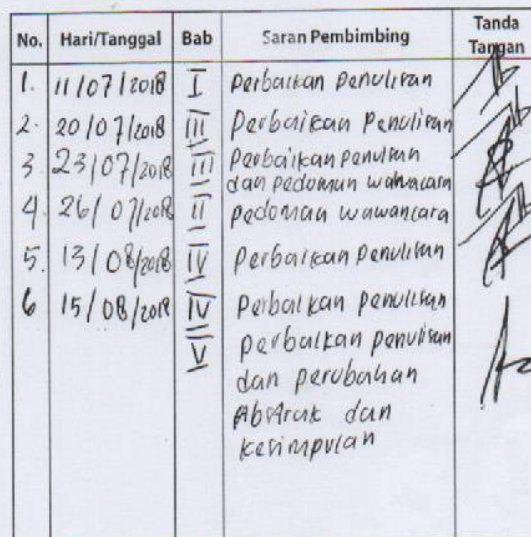 No. Hari/Tanggal Bab Saran Pembimbing Tanda Tangan
1. 11/07/2018 I Perbaikan Penulisan
2. 20/07/2018 III Perbaikan Penulisan
3. 23/07/2018 III Perbaikan Penulisan
dan pedoman wawancara
4. 26/07/2018 II pedoman wawancara
5. 13/08/2018 IV Perbaikan Penulisan
6 15/08/2018 IV Perbaikan Penulisan
V perbaikan penulisan
dan perubahan
Abstrak dan
kesimpulan